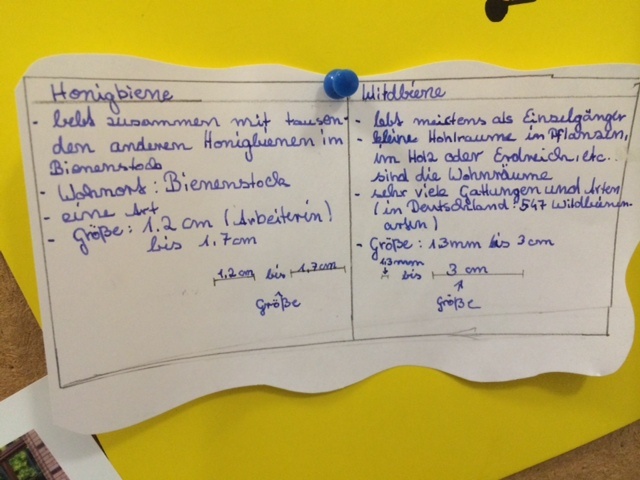 Honigbiene
- lebt zusammen mit tausen-
den anderen Honigbienen im
Bienenstock
- Wohnort: Bienenstock
- eine Art
- Größe: 1.2 cm (Arbeiterin)
bis 1,7cm
1.2cm bis 1,7cm
Größe
Wildbiene
- lebt meistens als Einzelgänger
- kleine Hohlräume in Pflanzen,
im Holz oder Erdreich, etc..
sind die Wohnräume
- sehr viele Gattungen und Arten
(in Deutschland: 547 Wildbienen-
arten)
- Größe: 1.3mm bis 3cm
1.3mm bis 3 cm
Größe